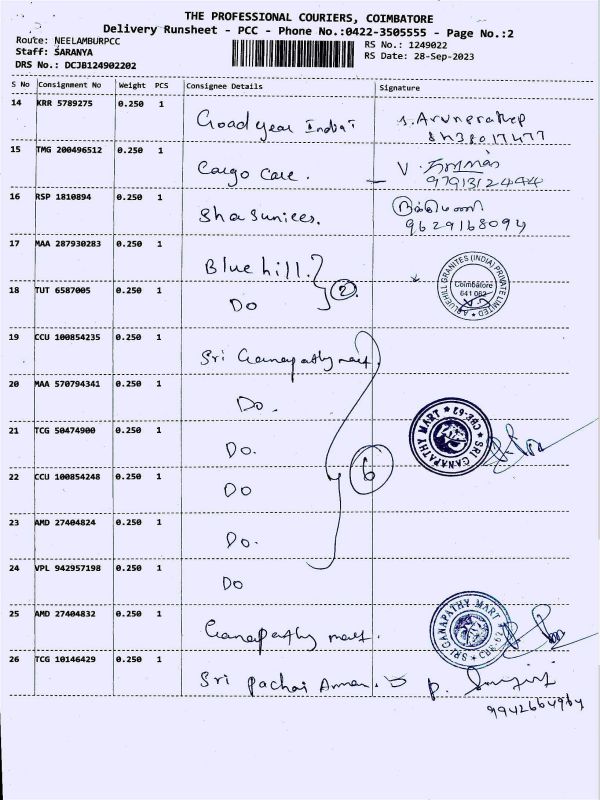 THE PROFESSIONAL COURIERS, COIMBATORE
Delivery Runsheet - PCC - Phone No.:0422-3505555 - Page No.:2
Route: NEELAMBURPCC
RS No.: 1249022
Staff: SARANYA
RS Date: 28-Sep-2023
DRS No.: DCJB124902202
S No Consignment No Weight PCS Consignee Details Signature
14 KRR 5789275 0.250 1 Goodyear India
15 TMG 200496512 0.250 1 Cargo Care.
9791312444
16 RSP 1810894 0.250 1
9629168094
17 MAA 287930283 0.250 1 Bluehill.
A BLUEHILL GRANITES (INDIA) PRIVATE LIMITED
Coimbatore
641 062
18 TUT 6587005 0.250 1 Do 2
19 CCU 100854235 0.250 1 Sri Ganapathy mart
20 MAA 570794341 0.250 1 Do.
21 TCG 50474900 0.250 1 Do.
SRI GANAPATHY MART CBE-62
22 CCU 100854248 0.250 1 Do 6
23 AMD 27404824 0.250 1 Do.
24 VPL 942957198 0.250 1 Do
25 AMD 27404832 0.250 1 Ganapathy mart.
SRI GANAPATHY MART CBE-62
26 TCG 10146429 0.250 1 Sri pachai Amman.